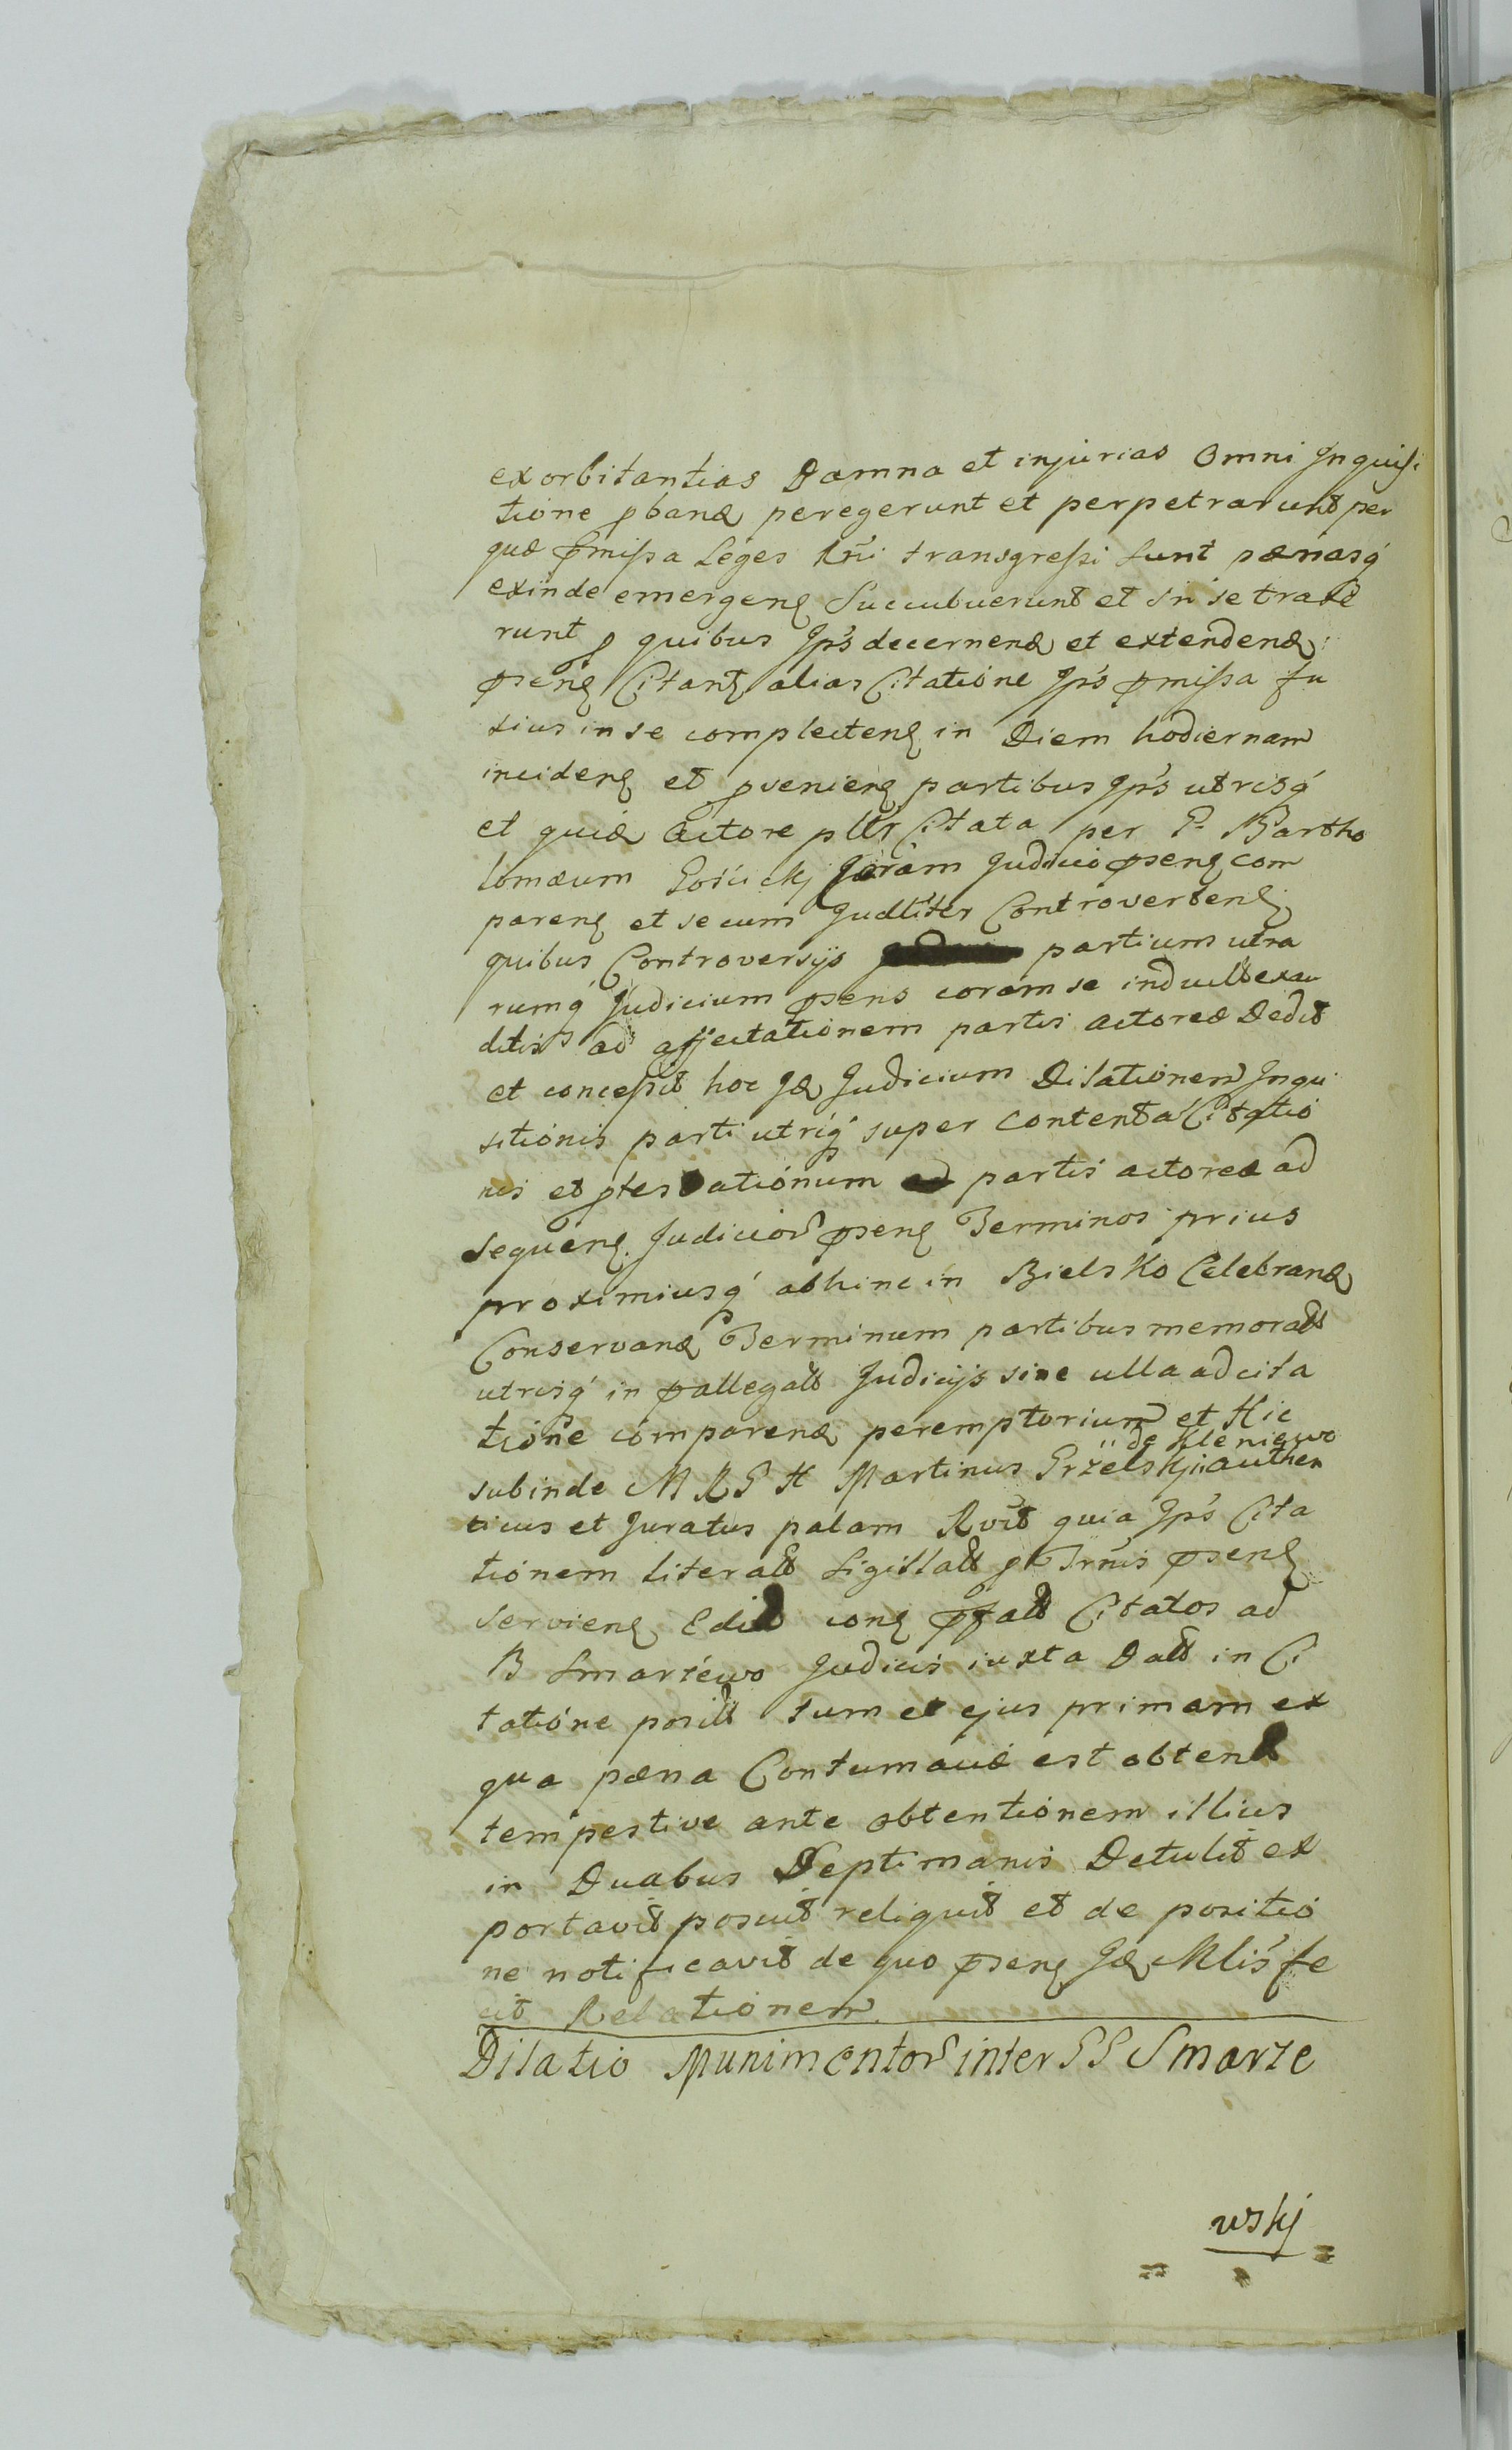 exorbitantias Damna et injurias Omni Inquisi
tione pband peregerunt et perpetrarunt per
quæ pmissa Leges Rñi transgressi sunt pænasq́
exinde emergen succubuerunt et in se traxe
runt p quibus Ips decernend et extendend
psen Citant alias Citatione Ips pmissa fu
sius in se complecten in Diem hodiernam
inciden et pvenien partibus Ips utrisq́
et quid Actore pltr Citata per P. Bartho
lomæum coram Judicio psen com
paren et secum Judltter Controverten
quibus Controversys partium utra
rumq́ Judicium psens coram se induct exau
ditis ad affectationem partis Actoreæ Dedit
et concessit hoc Id Judicium Dilationem Inqui
sitionis parti utriq́ super contenta Citatio
nis et ptestationum partis actoreæ ad
sequen Judicior psen Terminos prius
proximiusq́ abhinc in Bielsko Celebrand
Conservand Terminum partibus memoratt
utrisq́ in pallegatt Judicijs sine ulla adcita
tione comparend peremptorium et Hic
subinde M R G H Martinus Grzelskj de Kleniewo authen
ticus et Juratus palam Rvit quia Ips Cita
tionem literatt sigillatt p Trnis psen
servien Edit con pfatt Citatos ad
B Smarzewo Judicis iuxta Datt in Ci
tatione positt tum et ejus primam ex
qua pæna Contumaciæ est obtent
tempestive ante obtentionem illius
in Duabus Septimanis Detulit ex
portavit posuit reliquit et de positio
ne notificavit de quo psen Id Mlis fe
cit Relationem
Dilatio Munimentor inter G G Smarze
wskj